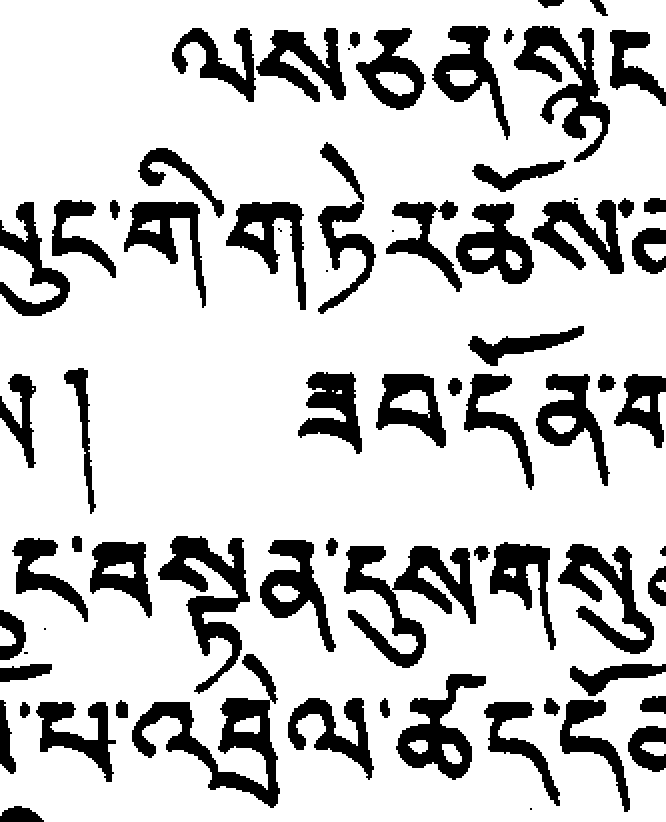 ལས་ཅན་སྙིང
ཡུང་གི་གཏེར་ཆོས
། ཟབ་དོན
ང་བསྟན་དུས་གསུ
པ་འབྲེལ་ཚད་དོན